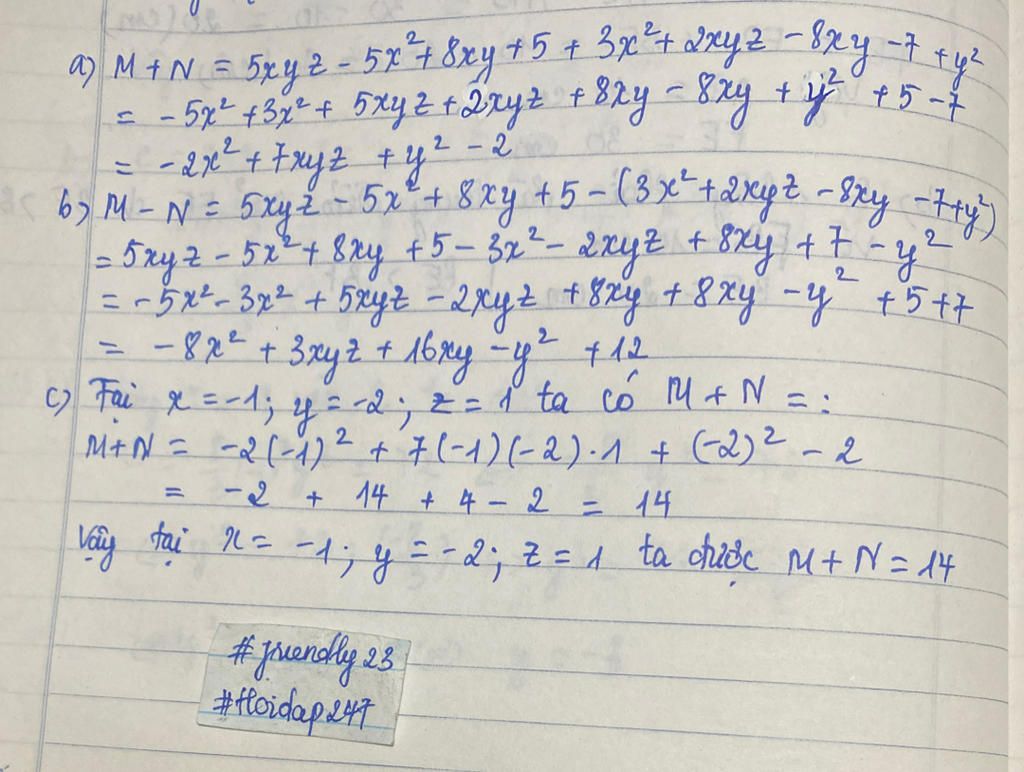 a) M + N = 5xyz - 5x² + 8xy + 5 + 3x² + 2xyz - 8xy - 7 + y²
= -5x² + 3x² + 5xyz + 2xyz + 8xy - 8xy + y² + 5 - 7
= -2x² + 7xyz + y² - 2
b) M - N = 5xyz - 5x² + 8xy + 5 - (3x² + 2xyz - 8xy - 7 + y²)
= 5xyz - 5x² + 8xy + 5 - 3x² - 2xyz + 8xy + 7 - y²
= -5x² - 3x² + 5xyz - 2xyz + 8xy + 8xy - y² + 5 + 7
= -8x² + 3xyz + 16xy - y² + 12
c) Tại x = -1; y = -2; z = 1 ta có M + N = :
M + N = -2(-1)² + 7(-1)(-2).1 + (-2)² - 2
= -2 + 14 + 4 - 2 = 14
Vậy tại x = -1; y = -2; z = 1 ta được M + N = 14
#friendly23
#Hoidap247